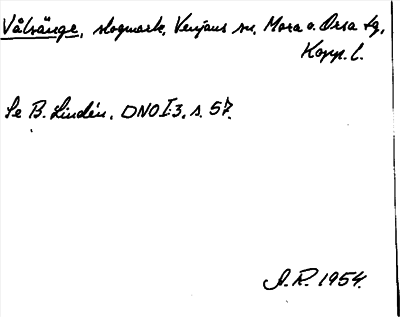 Vålsänge, skogmark, Venjans sn, Mora o. Orsa tg,
Kopp. l.
Se B. Lindén, DNO I:3, s. 57.
A.R. 1954.